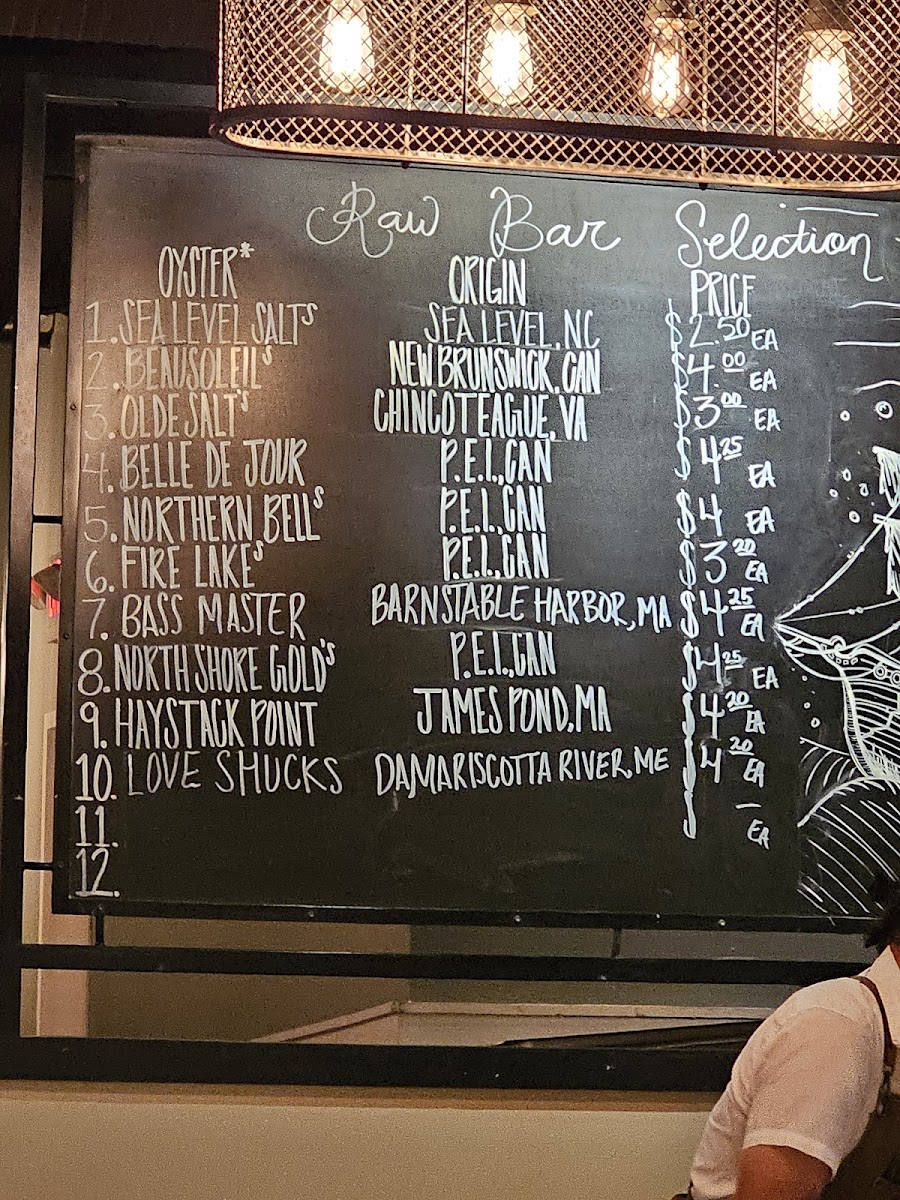 Raw Bar Selection
OYSTER* ORIGIN PRICE
1. SEA LEVEL SALTS SEA LEVEL, NC $2.50 EA
2. BEAUSOLEIL'S NEW BRUNSWICK, CAN $4.00 EA
3. OLDE SALT'S CHINCOTEAGUE, VA $3.00 EA
4. BELLE DE JOUR P.E.I., CAN $4.25 EA
5. NORTHERN BELL'S P.E.I., CAN $4 EA
6. FIRE LAKE'S P.E.I., CAN $3.20 EA
7. BASS MASTER BARNSTABLE HARBOR, MA $4.25 EA
8. NORTH SHORE GOLD'S P.E.I., CAN $4.25 EA
9. HAYSTACK POINT JAMES POND, MA $4.20 EA
10. LOVE SHUCKS DAMARISCOTTA RIVER, ME $4.20 EA
11. $ — EA
12.